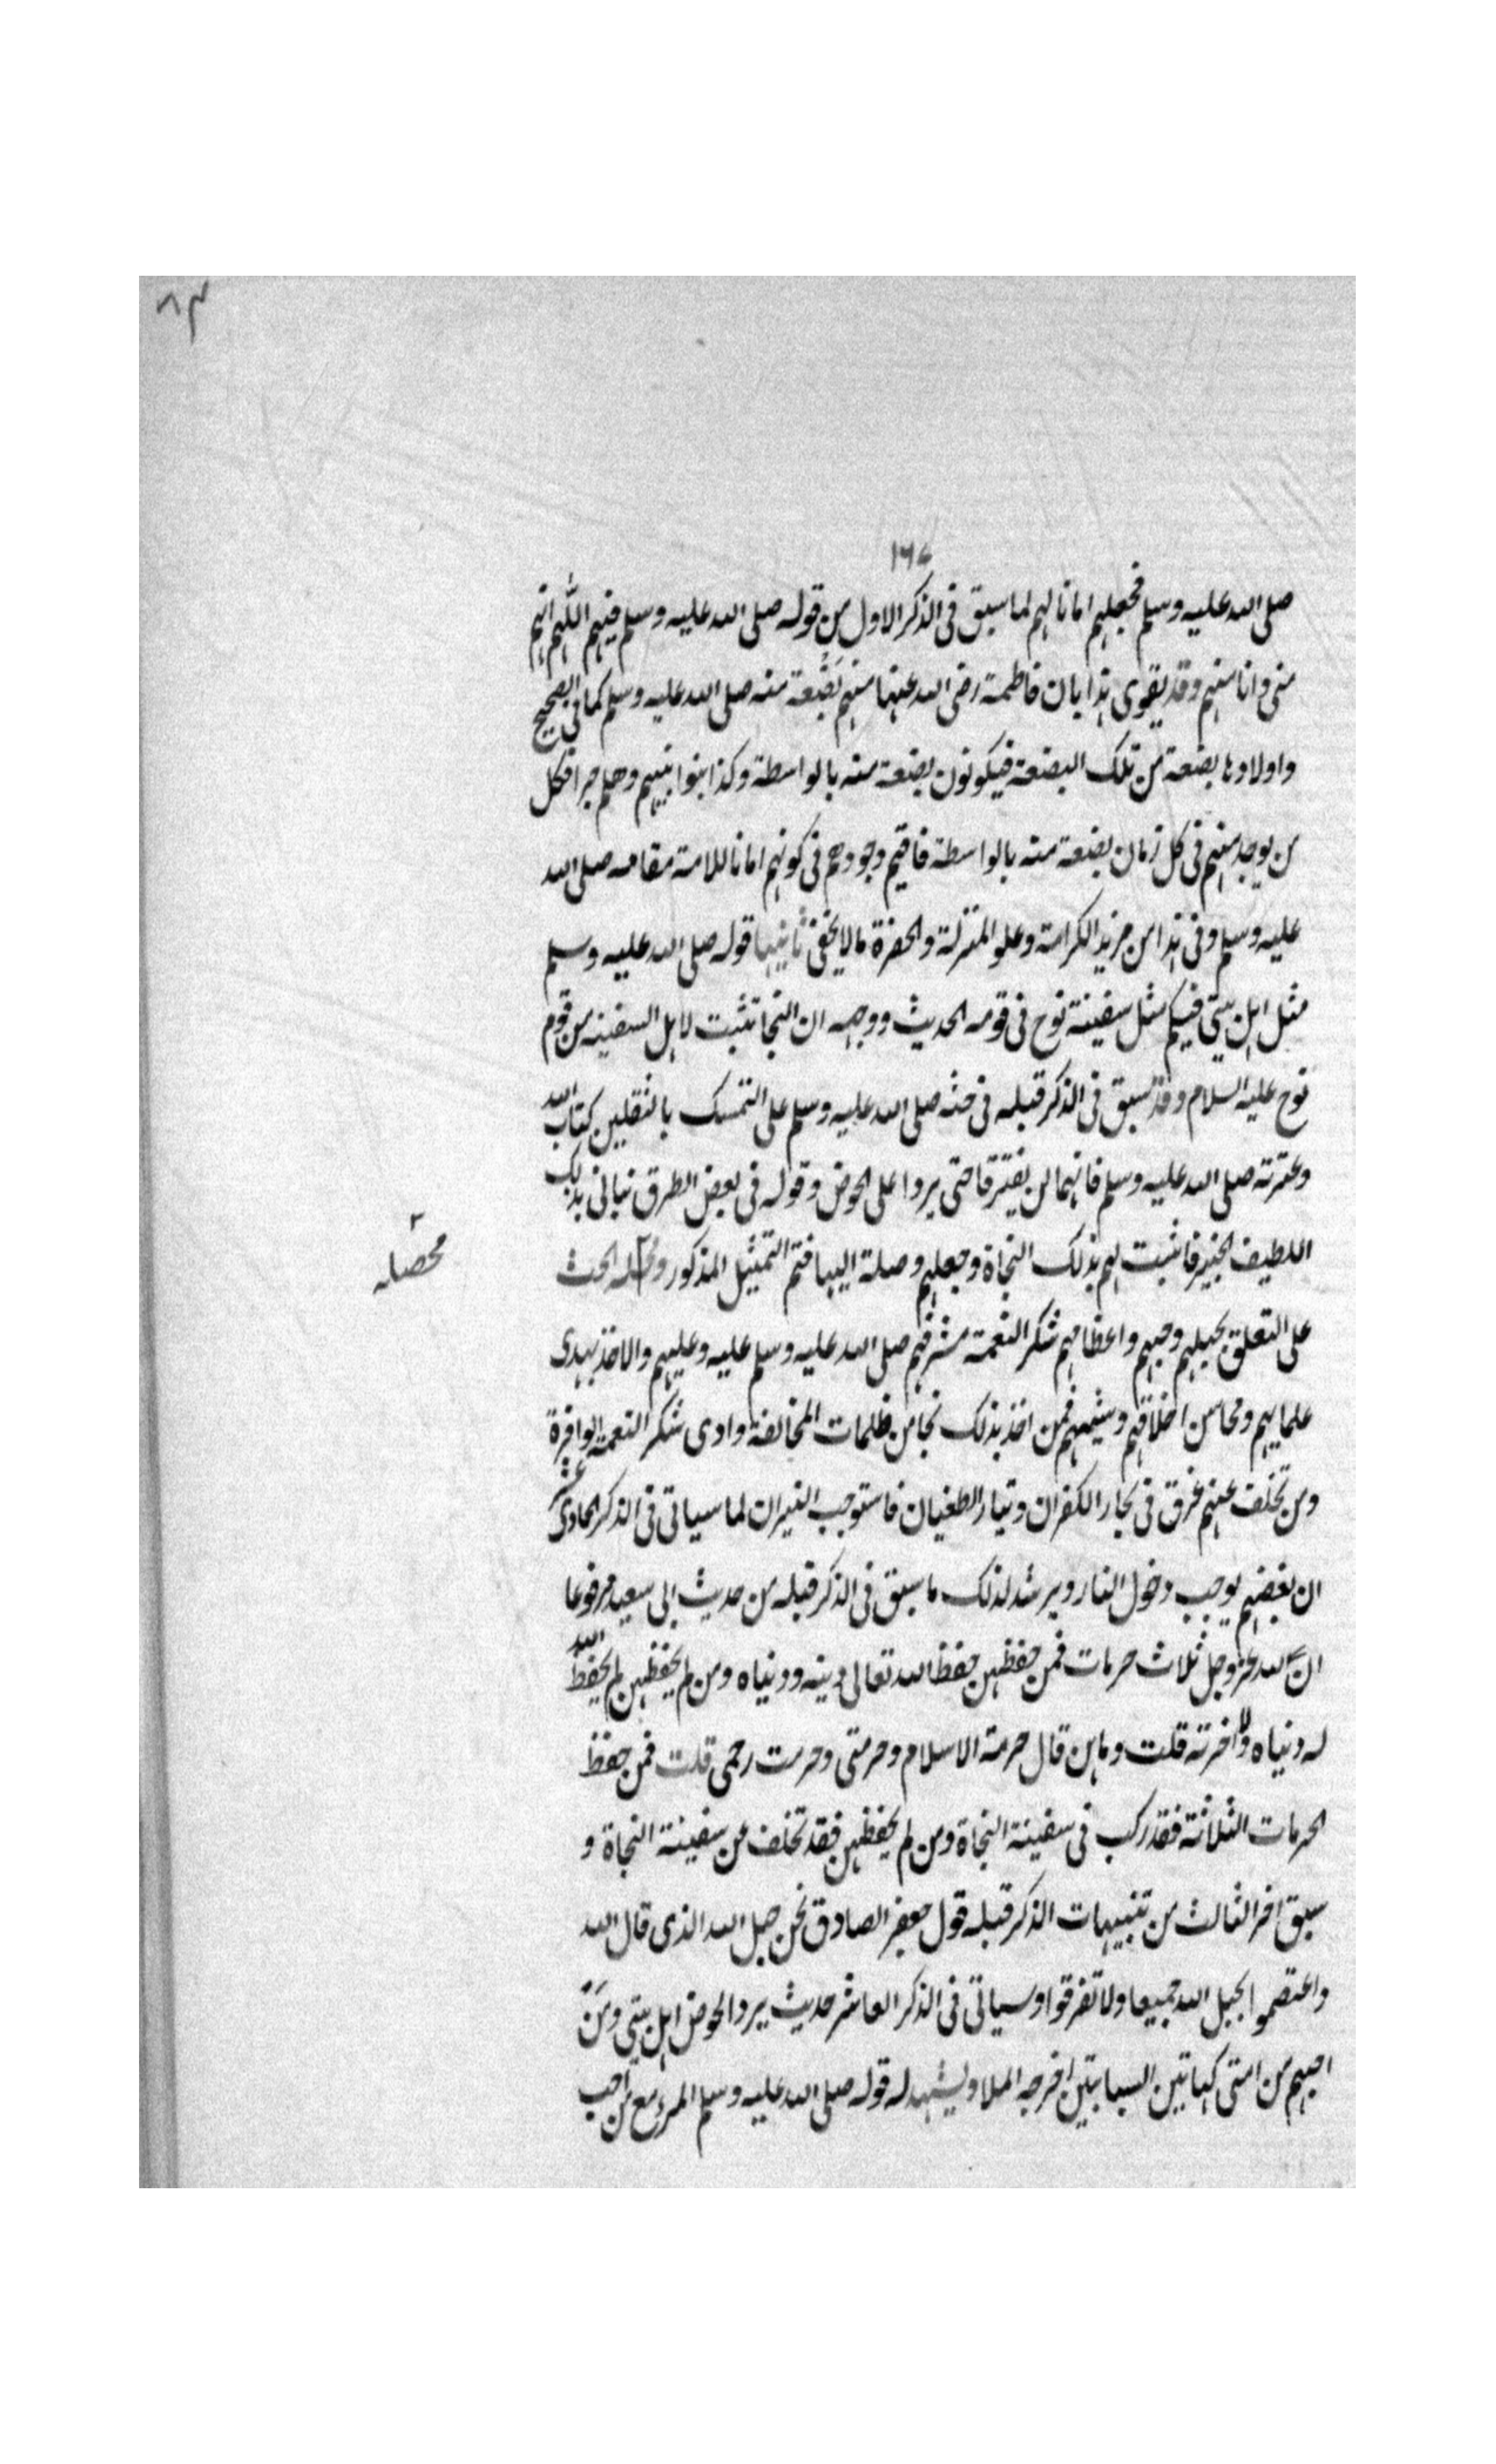 ٨٣
١٦٧
صلى الله عليه وسلم فجعلهم امانا لهم لما سبق فى الذكر الاول من قوله صلى الله عليه وسلم فيهم اللهم انهم
منى وانا منهم وقد يقوى هذا بان فاطمة رضى الله عنها منهم بَضْعة منه صلى الله عليه وسلم كما فى الصحيح
واولادها بضعة من تلك البضعة فيكونون بضعة منه بالواسطة وكذا بنوا بنيهم وهلم جرا فكل
من يوجد منهم فى كل زمان بضعة منه بالواسطة فاقيم وجودهم فى كونهم امانا للامة مقامه صلى الله
عليه وسلم وفى هذا من مزيد الكرامة وعلو المنزلة والحضرة مالا يخفى ثانيها قوله صلى الله عليه وسلم
مثل اهل بيتى فيكم مثل سفينة نوح فى قومه الحديث ووجهه ان النجا تثبت لاهل السفينه من قوم
نوح عليه السلام وقد سبق فى الذكر قبله فى حثه صلى الله عليه وسلم على التمسك بالثقلين كتاب الله
وعترته صلى الله عليه وسلم فانهما لن يفترقا حتى يردا على الحوض وقوله فى بعض الطرق نبانى بذلك
اللطيف الخبير فاثبت لهم بذلك النجاة وجعلهم وصلة اليها فتم التمثيل المذكور و الحث
محصله
على التعلق بحبلهم وحبهم واعظامهم شكر النعمة مشرفهم صلى الله عليه وسلم عليه وعليهم والاخذ بهدى
علمايهم ومحاسن اخلاقهم وشيمهم فمن اخذ بذلك نجا من ظلمات المخالفة وادى شكر النعمة الوافرة
ومن تخلف عنهم غرق فى بحار الكفران وتيار الطغيان فاستوجب النيران لما سياتى فى الذكر الحادى عشر
ان بغضهم يوجب دخول النار ويرشد لذلك ما سبق فى الذكر قبله من حديث ابى سعيد مرفوعا
ان لله عز وجل ثلاث حرمات فمن حفظهن حفظ الله تعالى دينه ودنياه ومن لم يحفظهن لم يحفظ الله
له دنياه ولا اخرته قلت وما هن قال حرمة الاسلام وحرمتى وحرمت رحمى قلت فمن حفظ
الحرمات الثلاثة فقد ركب فى سفينة النجاة ومن لم يحفظهن فقد تخلف عن سفينة النجاة و
سبق اخر الثالث من تنبيهات الذكر قبله قول جعفر الصادق نحن حبل الله الذى قال الله
واعتصموا بحبل الله جميعا ولا تفرقوا وسياتى فى الذكر العاشر حديث يرد الحوض اهل بيتى ومَن
احبهم من امتى كهاتين السبابتين اخرجه الملا ويشهد له قوله صلى الله عليه وسلم المرء مع من احب